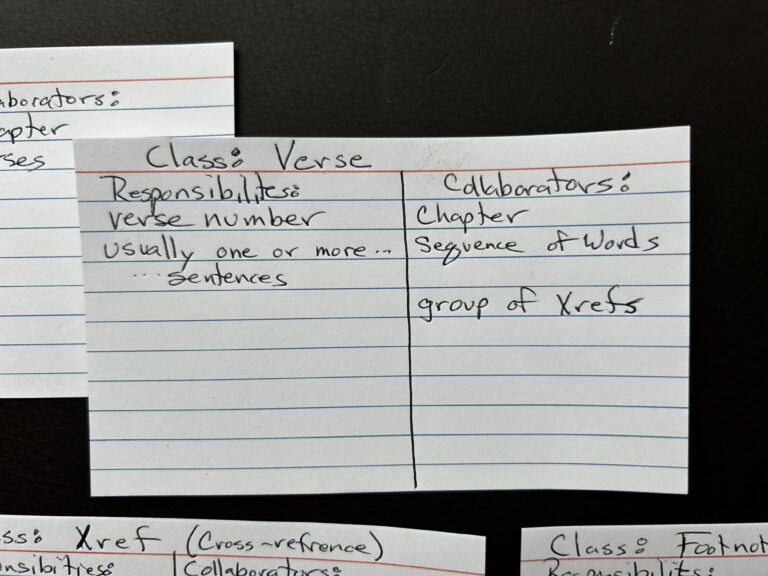 aborators:
apter
ses
Class: Verse
Responsibilites:
verse number
usually one or more...
... sentences
Collaborators:
Chapter
Sequence of Words
group of Xrefs
ss: Xref (Cross-refrence)
onsibities:
Collaborators:
Class: Footnot
Responsibilits: